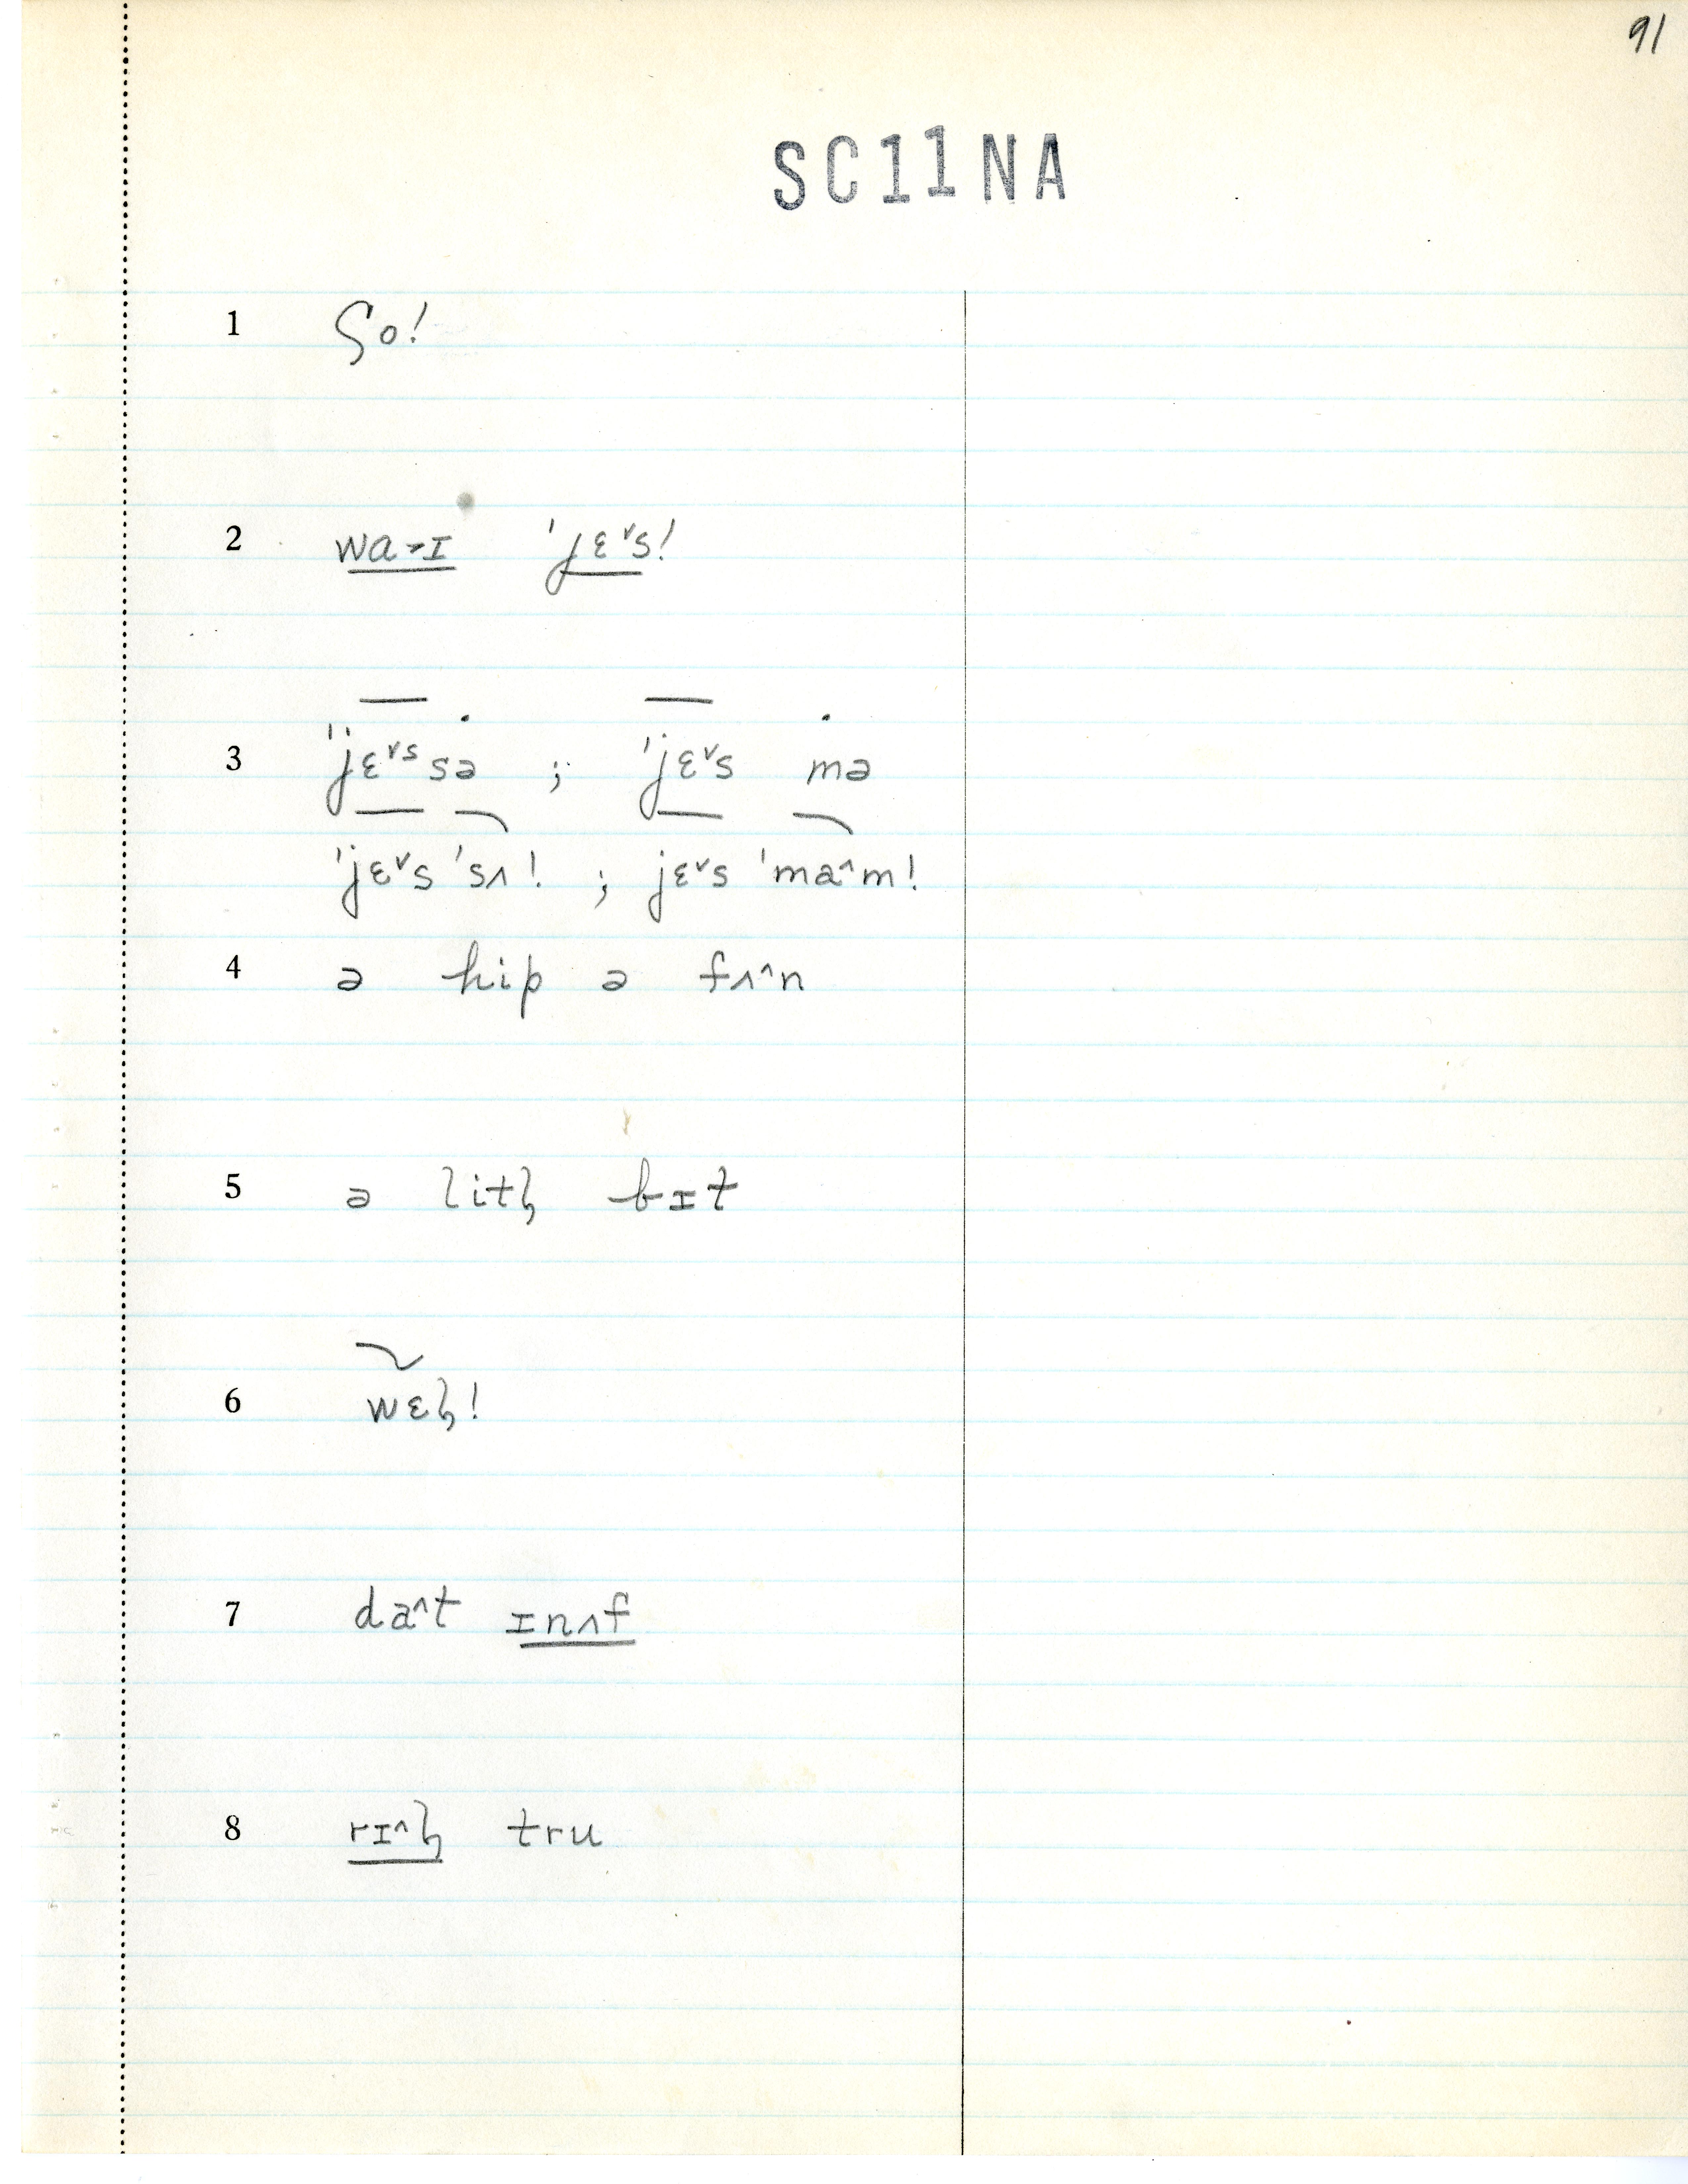 91
SC11NA
1 ʃo!
2 wa˃ɪ ˈjɛ˅s!
3 ˈjɛ˅ˢsə ; ˈjɛ˅s mə
ˈjɛ˅s ˈsʌ! ; jɛ˅s ˈma˄m!
4 ə hip ə fʌ˄n
5 ə litɫ̩ bɪt
6 wɛɫ̩!
7 da˄t ɪnʌf
8 rɪ˄ɫ̩ tru